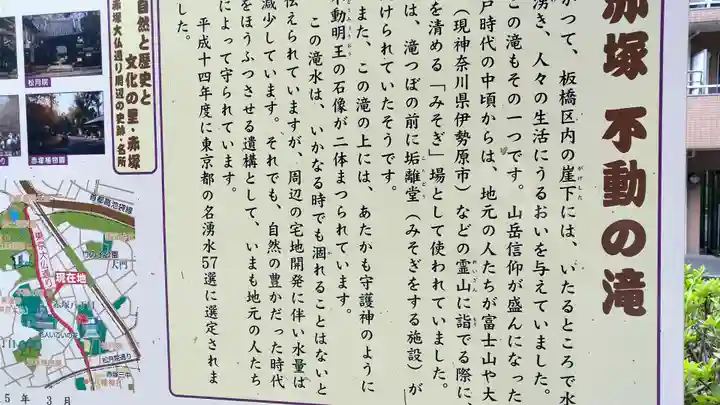 赤塚 不動の滝
かつて、板橋区内の崖下には、いたるところで水
湧き、人々の生活にうるおいを与えていました。
この滝もその一つです。山岳信仰が盛んになった
戸時代の中頃からは、地元の人たちが富士山や大
(現神奈川県伊勢原市)などの霊山に詣でる際に、
を清める「みそぎ」場として使われていました。
は、滝つぼの前に垢離堂(みそぎをする施設)が
けられていたそうです。
また、この滝の上には、あたかも守護神のように
不動明王の石像が二体まつられています。
この滝水は、いかなる時でも涸れることはないと
伝えられていますが、周辺の宅地開発に伴い水量は
減少しています。それでも、自然の豊かだった時代
をほうふつさせる遺構として、いまも地元の人たち
によって守られています。
平成十四年度に東京都の名湧水57選に選定されま
した。
自然と歴史と
文化の里・赤塚
赤塚大仏通り周辺の史跡・名所
松月院
赤塚植物園
首都高池袋線
東京大仏通り
現在地
竹の子公園
大門
松月院通り
赤塚三中
5年 3月